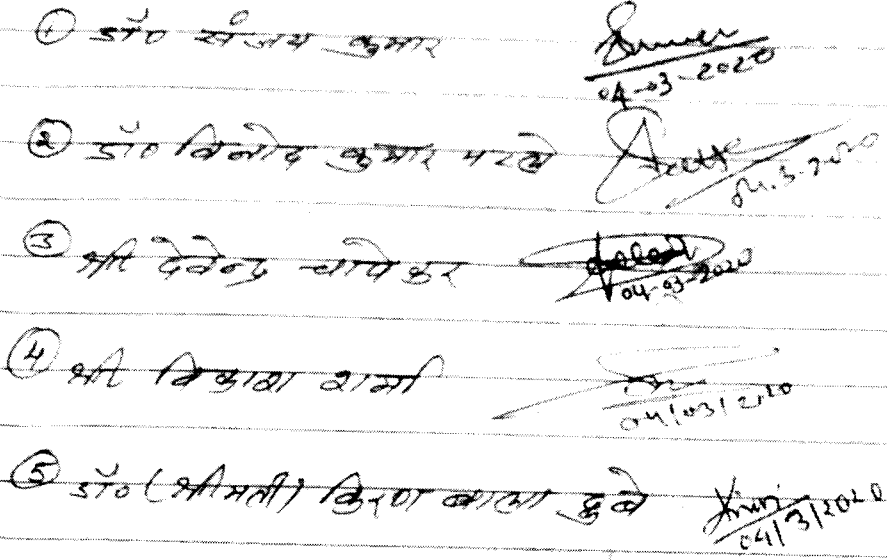 ① डॉ० संजय कुमार
04-03-2020
② डॉ० विनोद कुमार परते
04.3.2020
③ श्री देवेन्द्र चापेकर
04-03-2020
④ श्री विकाश शर्मा
04/03/2020
⑤ डॉ० (श्रीमती) किरण बाला दुबे
04/3/2020